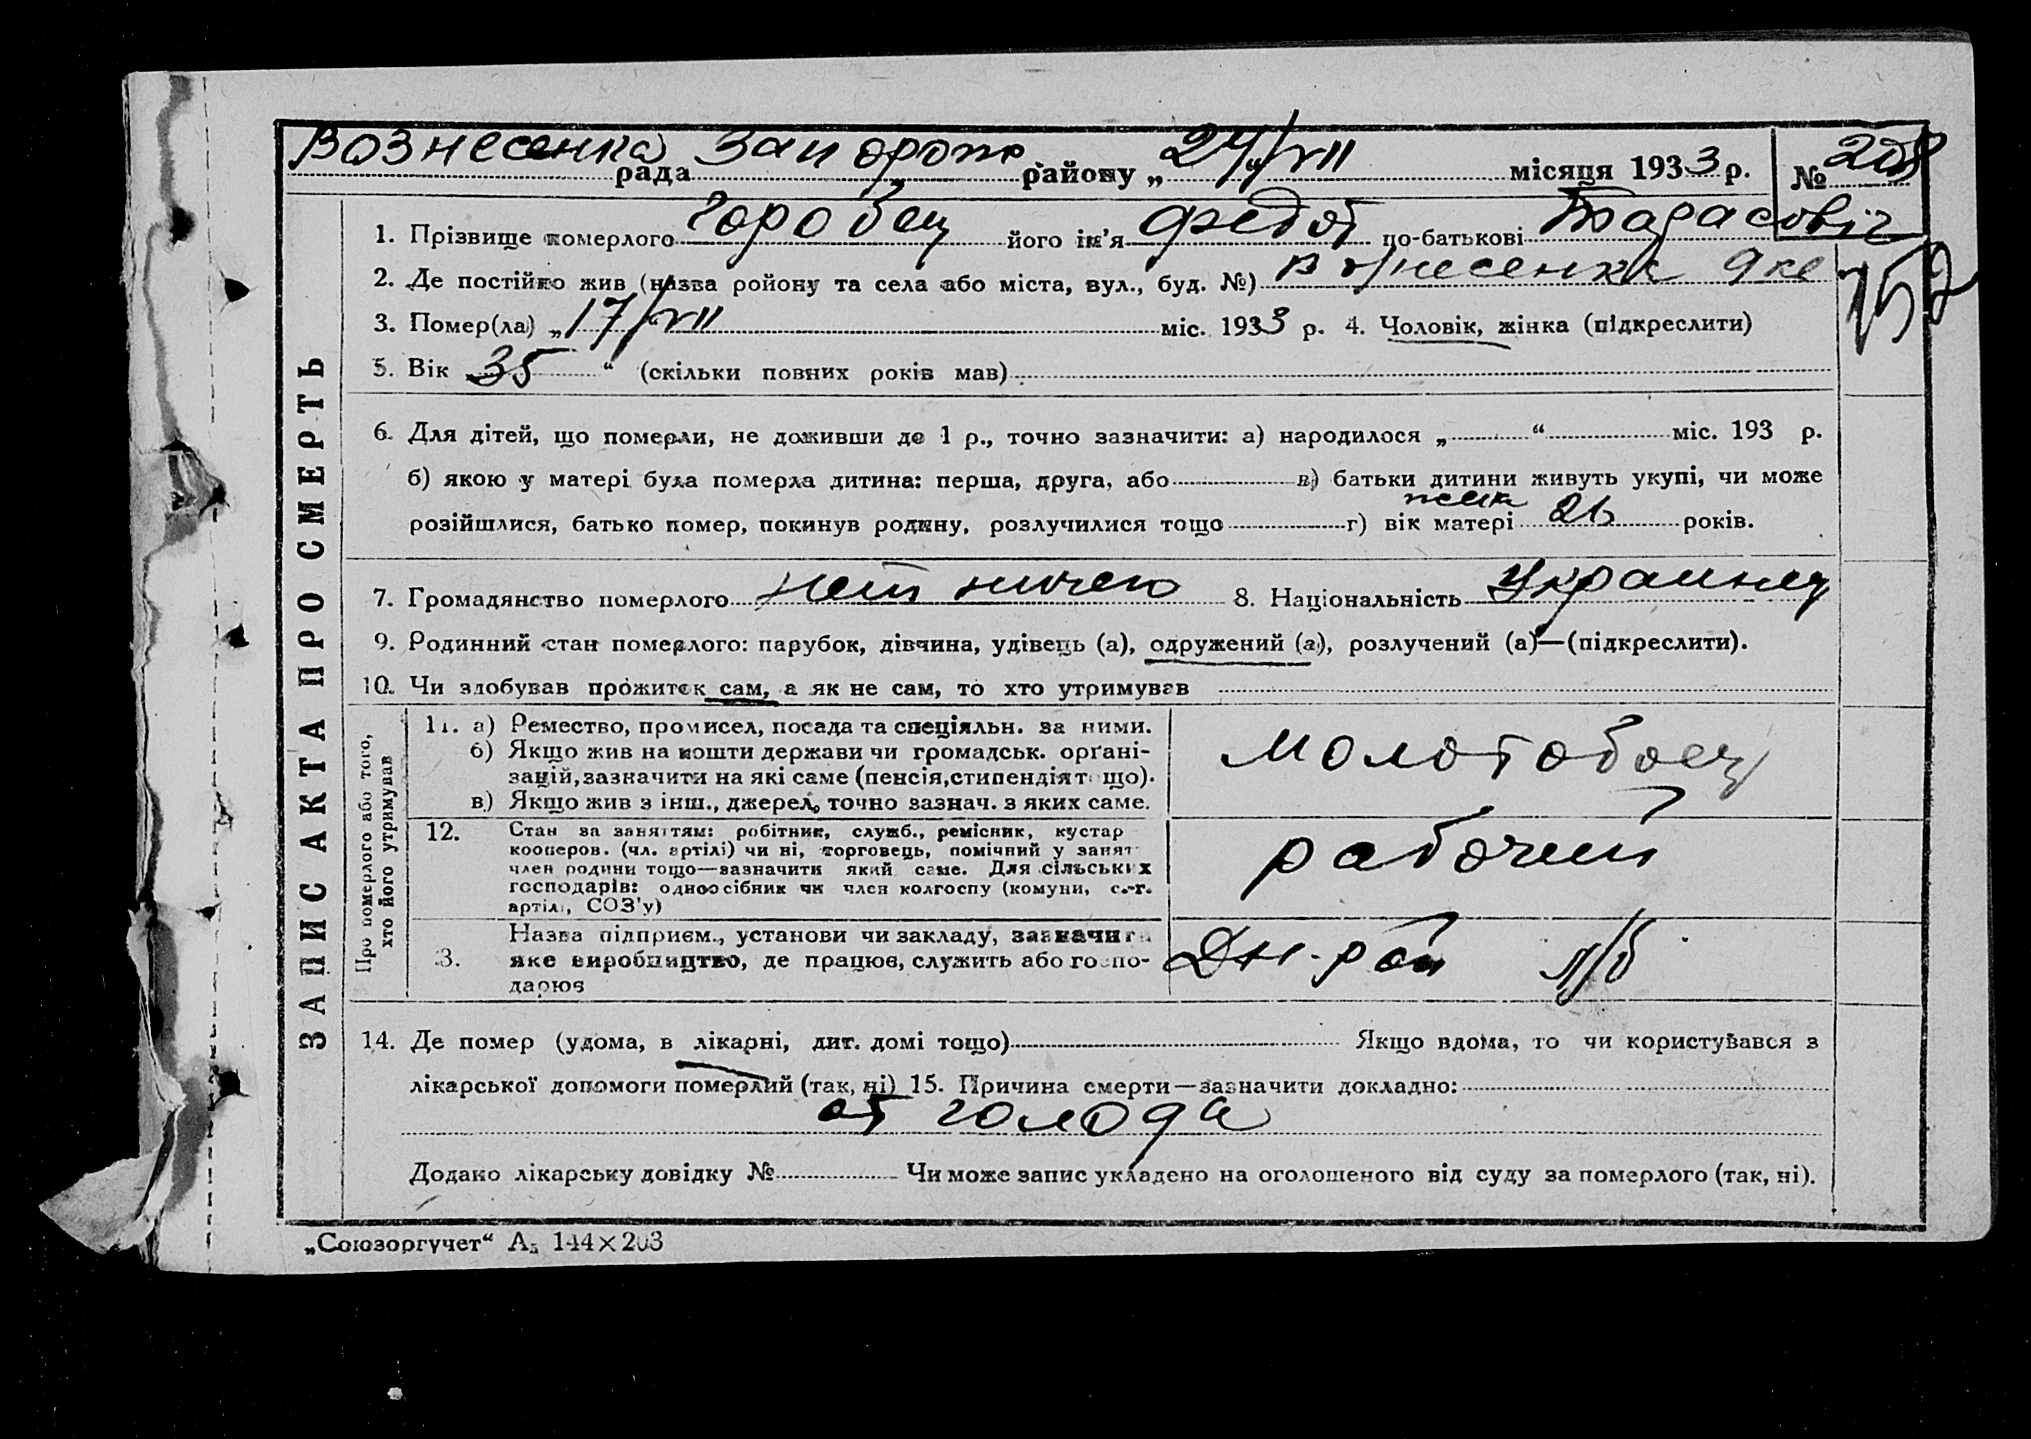 Вознесенка рада Запорож. району „24/VII місяця 1933 р. № 208
1. Прізвище померлого Горобец його ім'я Федот по-батькові Тарасовіч
2. Де постійно жив (назва ройону та села або міста, вул., буд. №) Вознесенка
152
3. Помер(ла) „17/VII міс. 1933 р. 4. Чоловік, жінка (підкреслити)
5. Вік „35“ (скільки повних років мав)
6. Для дітей, що померли, не доживши до 1 р., точно зазначити: а) народилося „ “ міс. 193 р.
б) якою у матері була померла дитина: перша, друга, або в) батьки дитини живуть укупі, чи може
розійшлися, батько помер, покинув родину, розлучилися тощо г) вік матері 26 років.
7. Громадянство померлого нет ничего 8. Національність Украинец
9. Родинний стан померлого: парубок, дівчина, удівець (а), одружений (а), розлучений (а)—(підкреслити).
10. Чи здобував прожиток сам, а як не сам, то хто утримував
ЗАПИС АКТА ПРО СМЕРТЬ
Про померлого або того,
хто його утримував
11. а) Ремество, промисел, посада та спеціяльн. за ними.
б) Якщо жив на кошти держави чи громадськ. орґані-
зацій, зазначити на які саме (пенсія, стипендія тощо).
в) Якщо жив з інш., джерел, точно зазнач. з яких саме.
Молотобоец
12. Стан за заняттям: робітник, служб., ремісник, кустар
кооперов. (чл. артілі) чи ні, торговець, помічний у занят
член родини тощо—зазначити який саме. Для сільських
господарів: одноосібник чи член колгоспу (комуни, с.-г.
артілі, СОЗ'у)
рабочий
3. Назва підприєм., установи чи закладу, зазначити
яке виробництво, де працює, служить або госпо-
дарює
Дн-рой
14. Де помер (удома, в лікарні, дит. домі тощо) Якщо вдома, то чи користувався з
лікарської допомоги померлий (так, ні) 15. Причина смерти—зазначити докладно:
от голода
Додано лікарську довідку № Чи може запис укладено на оголошеного від суду за померлого (так, ні).
„Союзоргучет“ А5 144×203